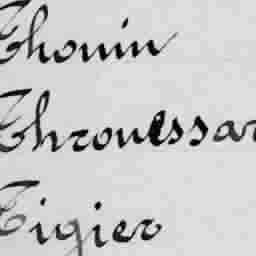 Thouin
Throuessar
Tigier